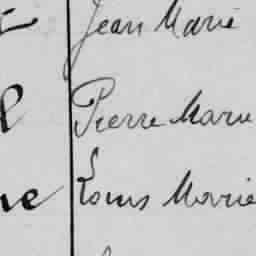 Jean Marie
Pierre Marie
ne Louis Marie